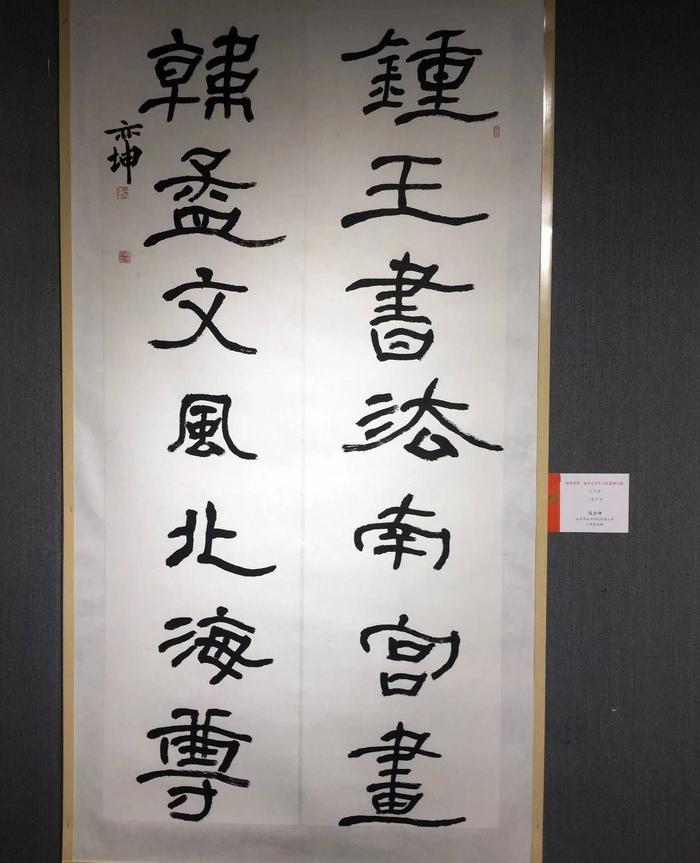 鍾王書法南宮畫
韓孟文風北海尊
亦坤